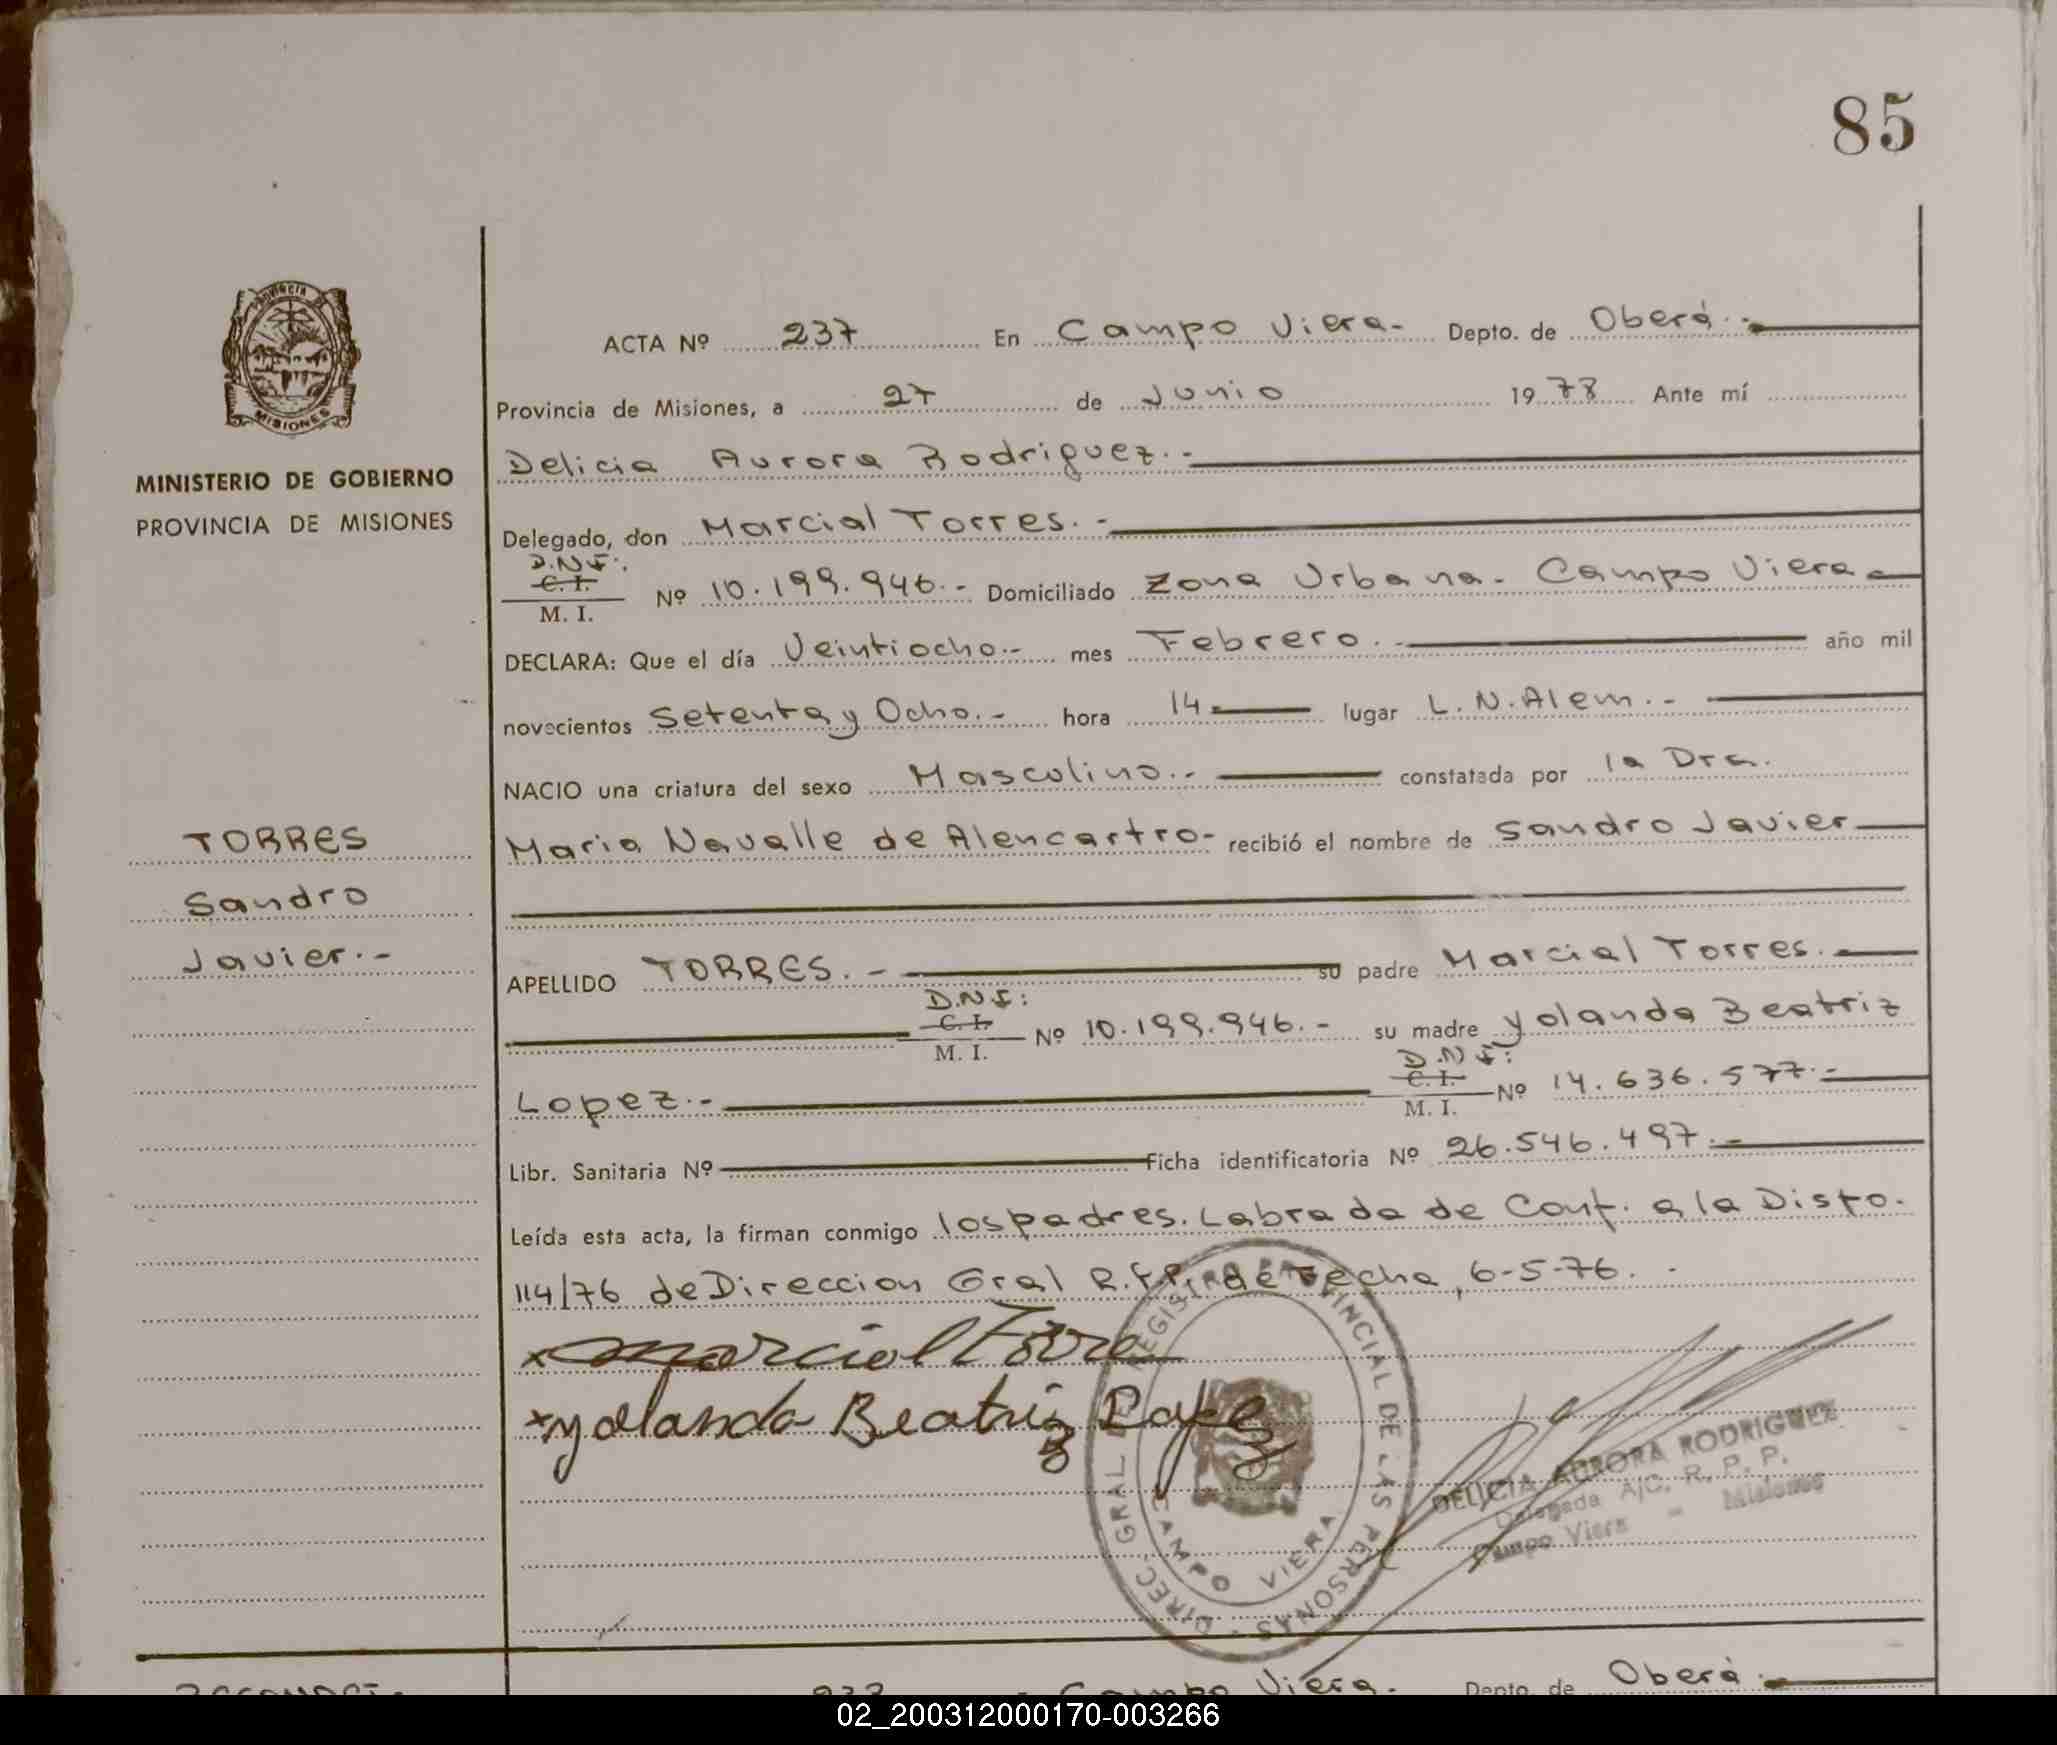 85
Provincia de
MISIONES
MINISTERIO DE GOBIERNO
PROVINCIA DE MISIONES
TORRES
Sandro
Javier.-
ACTA Nº 237 En Campo Viera.- Depto. de Oberá.-
Provincia de Misiones, a 27 de Junio 1978 Ante mí
Delicia Aurora Rodriguez.-
Delegado, don Marcial Torres.-
D.N.I:.
C. I.
M. I. Nº 10.199.946.- Domiciliado Zona Urbana- Campo Viera
DECLARA: Que el día Veintiocho.- mes Febrero.- año mil
novecientos Setenta y Ocho.- hora 14 lugar L.N.Alem.-
NACIO una criatura del sexo Masculino.- constatada por la Dra.
Maria Navalle de Alencartro- recibió el nombre de Sandro Javier
APELLIDO TORRES.- su padre Marcial Torres.
D.N.I:
C. I.
M. I. Nº 10.199.946.- su madre Yolanda Beatriz
Lopez.- D.N.I:
C. I.
M. I. Nº 14.636.577.-
Libr. Sanitaria Nº Ficha identificatoria Nº 26.546.497.-
Leída esta acta, la firman conmigo los padres. Labrada de Conf. a la Disto.
114/76 de Direccion Gral R.P.P. de Fecha, 6-5-76.-
x Marcial Torre
x Yolanda Beatriz Lopez
DIREC. GRAL. DEL REGISTRO PROVINCIAL DE LAS PERSONAS
CAMPO VIERA
DELICIA AURORA RODRIGUEZ
Delegada A/C. R. P. P.
Campo Viera - Misiones
Campo Viera. Depto. de Oberá.-
02_200312000170-003266